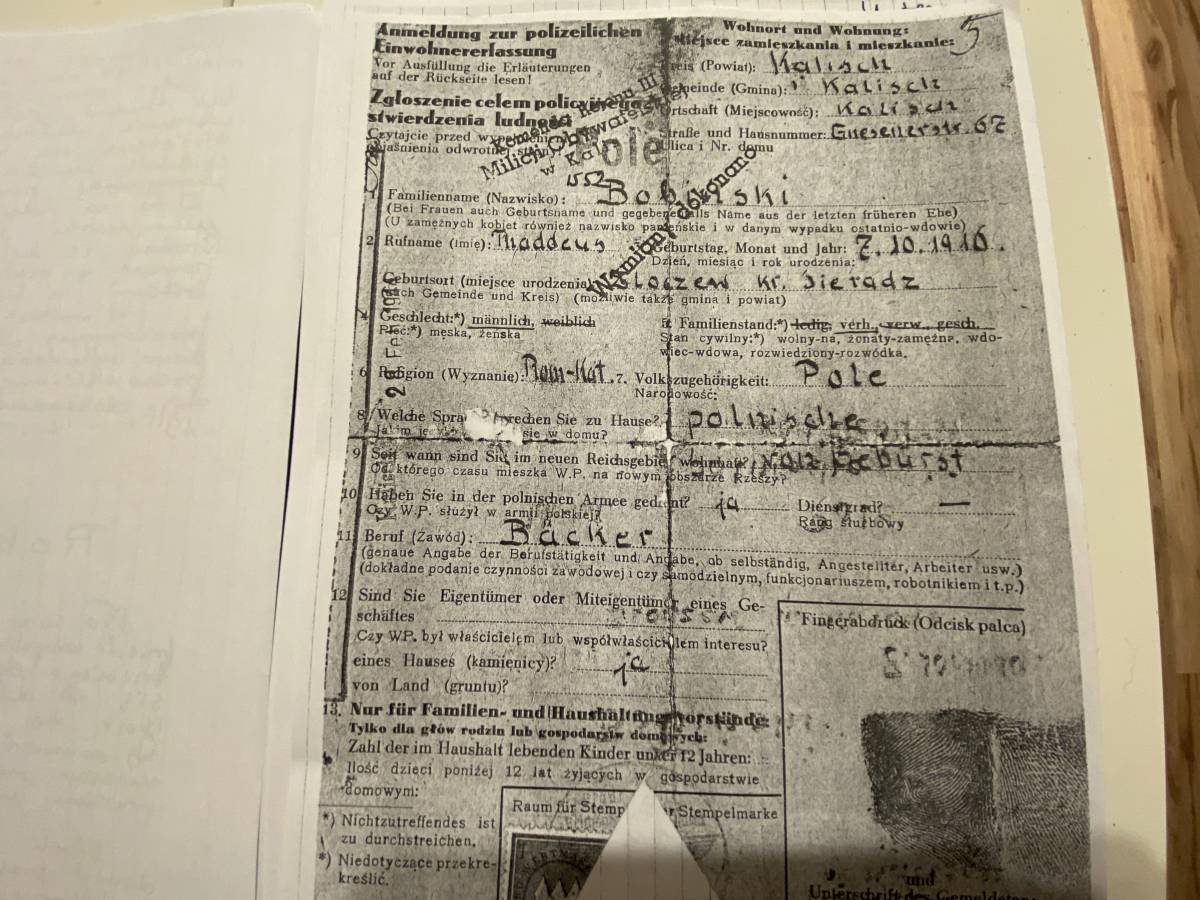 Anmeldung zur polizeilichen
Einwohnererfassung
Vor Ausfüllung die Erläuterungen
auf der Rückseite lesen!
Zgłoszenie celem policyjnego
stwierdzenia ludności
Czytajcie przed
odwrotnej
Wohnort und Wohnung:
Miejsce zamieszkania i mieszkanie:
5
Kreis (Powiat): Kalisch
Gemeinde (Gmina): Kalisch
Ortschaft (Miejscowość): Kalisch
Straße und Hausnummer: Gnesenerstr. 67
Ulica i Nr. domu
Milicji Obywatelskiej
w Kal
Pole
Wymianę dokonano
552
1. Familienname (Nazwisko): Bobinski
(Bei Frauen auch Geburtsname und gegebenenfalls Name aus der letzten früheren Ehe)
(U zamężnych kobiet również nazwisko panieńskie i w danym wypadku ostatnio-wdowie)
2. Rufname (Imię): Thaddeus
Geburtstag, Monat und Jahr: 7.10.1910.
Dzień, miesiąc i rok urodzenia:
Geburtsort (miejsce urodzenia) kr. Sieradz
(auch Gemeinde und Kreis) (możliwie także gmina i powiat)
4 Geschlecht:*) männlich, weiblich
Płeć:*) męska, żeńska
5. Familienstand:*) ledig, verh., verw., gesch.
Stan cywilny:*) wolny-na, żonaty-zamężna, wdo-
wiec-wdowa, rozwiedziony-rozwódka.
6 Religion (Wyznanie): Rom-Kat.
7. Volkszugehörigkeit: Pole
Narodowość:
8. Welche Sprache sprechen Sie zu Hause? polnische
się w domu?
9. Seit wann sind Sie im neuen Reichsgebiet wohnhaft? Geburt
Od którego czasu mieszka W.P. na nowym obszarze Rzeszy?
10. Haben Sie in der polnischen Armee gedient? ja Dienstgrad? —
Czy W.P. służył w armii polskiej? Rang służbowy
11. Beruf (Zawód): Bäcker
(genaue Angabe der Berufstätigkeit und Angabe, ob selbständig, Angestellter, Arbeiter usw.)
(dokładne podanie czynności zawodowej i czy samodzielnym, funkcjonariuszem, robotnikiem i t.p.)
12. Sind Sie Eigentümer oder Miteigentümer eines Ge-
schäftes
Czy W.P. był właścicielem lub współwłaścicielem interesu?
eines Hauses (kamienicy)? ja
von Land (gruntu)?
13. Nur für Familien- und Haushaltungsvorstände:
Tylko dla głów rodzin lub gospodarstw domowych:
Zahl der im Haushalt lebenden Kinder unter 12 Jahren:
Ilość dzieci poniżej 12 lat żyjących w gospodarstwie
domowym:
*) Nichtzutreffendes ist
zu durchstreichen.
*) Niedotyczące przekre-
kreślić.
Raum für Stempel Stempelmarke
Fingerabdruck (Odcisk palca)
und
Unterschrift des Gemeldeten